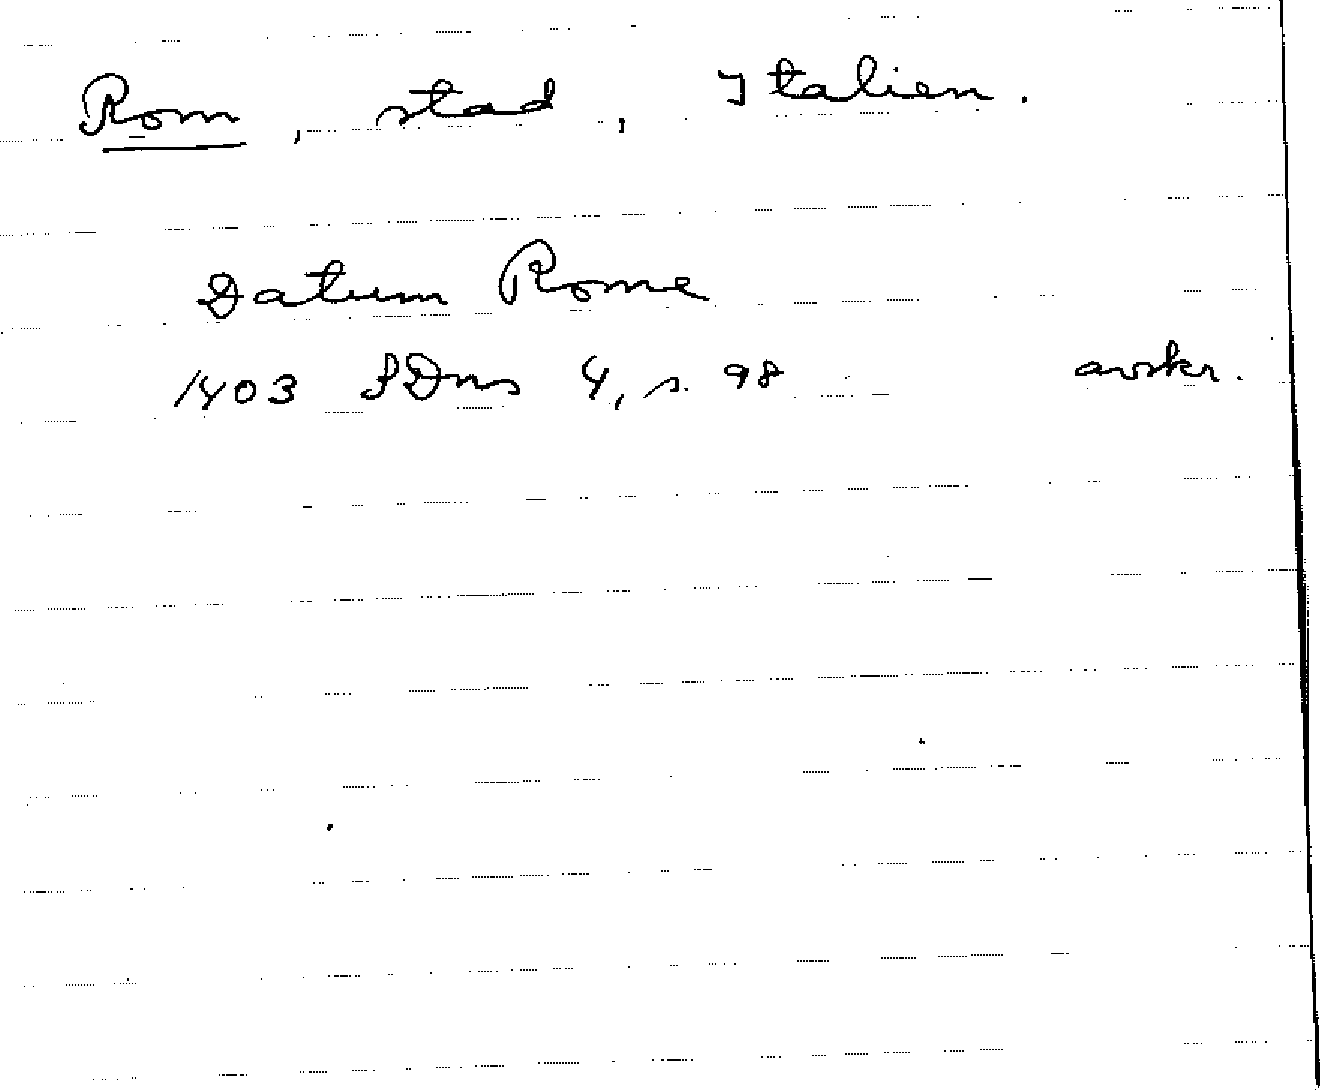 Rom, stad, Italien.
Datum Rome
1403 SDns 4, s. 98 avskr.